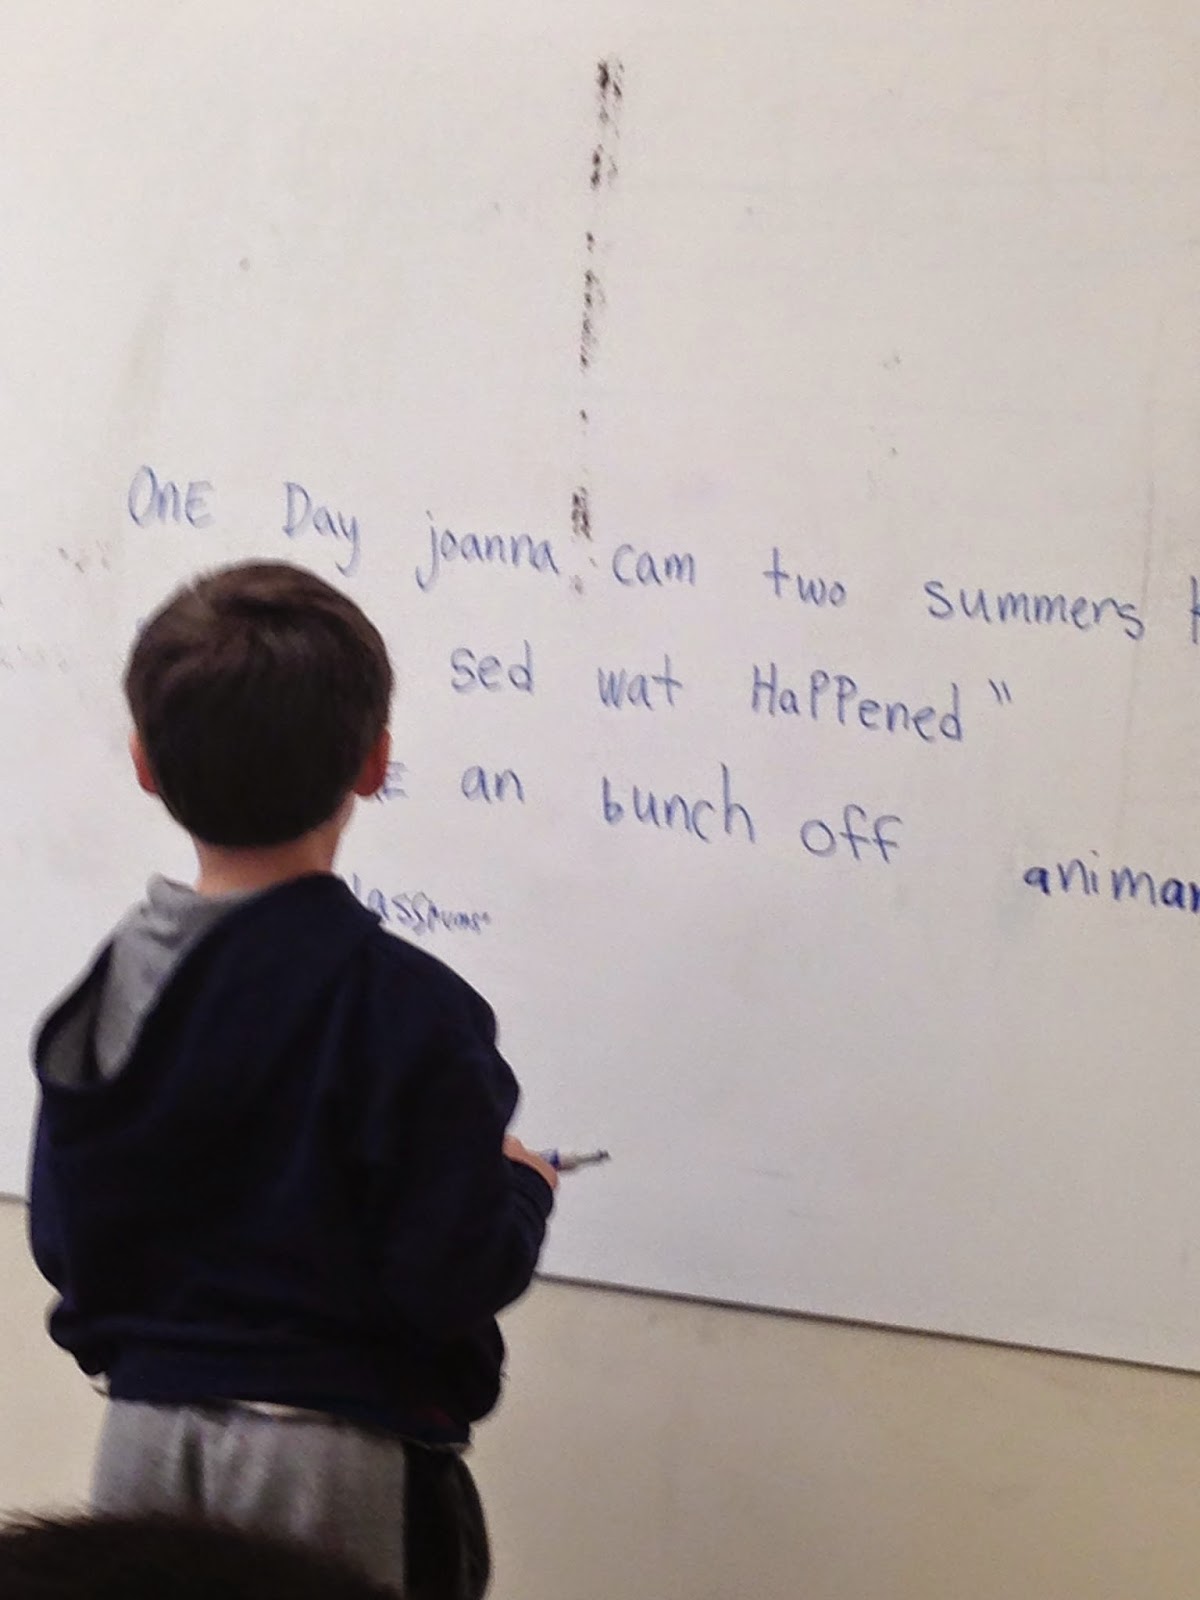 OnE Day joanna cam two summers
sed wat HaPPened"
an bunch off animar